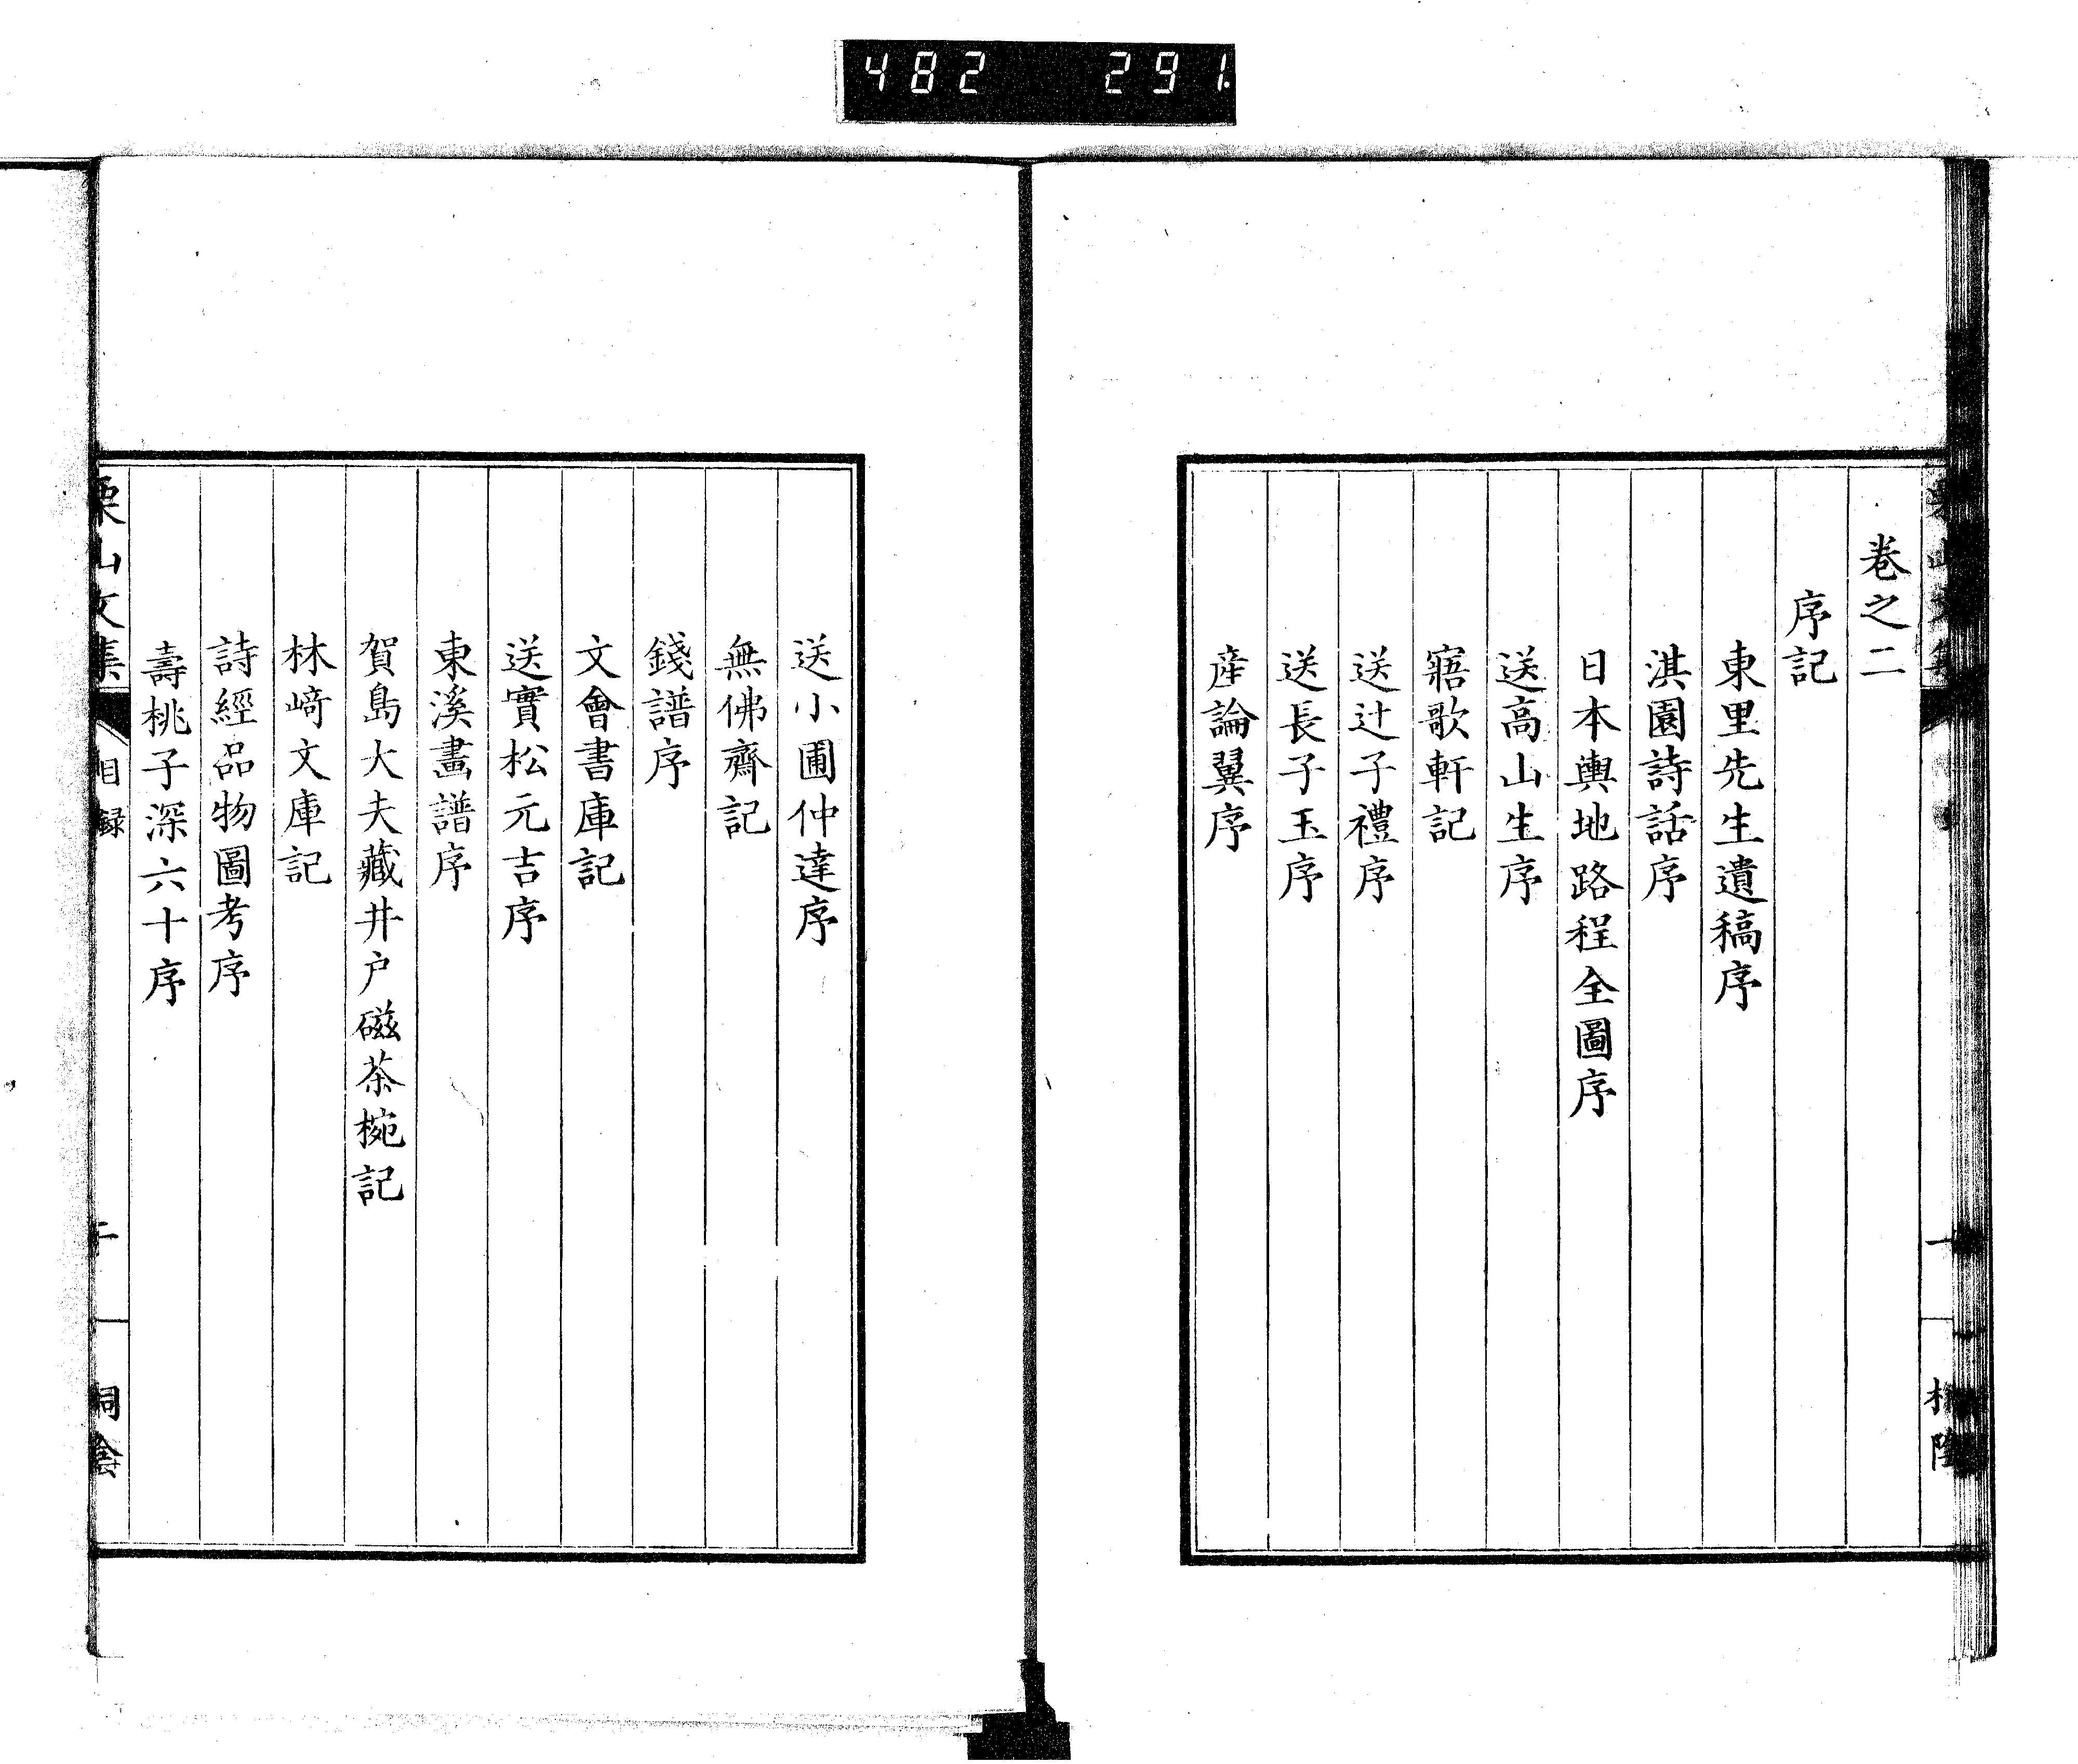 482 291
卷之二
序記
東里先生遺稿序
淇園詩話序
日本輿地路程全圖序
送高山生序
寤歌軒記
送辻子禮序
送長子玉序
産論翼序
送小圃仲達序
無佛齋記
錢譜序
文會書庫記
送實松元吉序
東溪畫譜序
賀島大夫藏井户磁茶椀記
林﨑文庫記
詩經品物圖考序
壽桃子深六十序
栗山文集 目録
桐陰